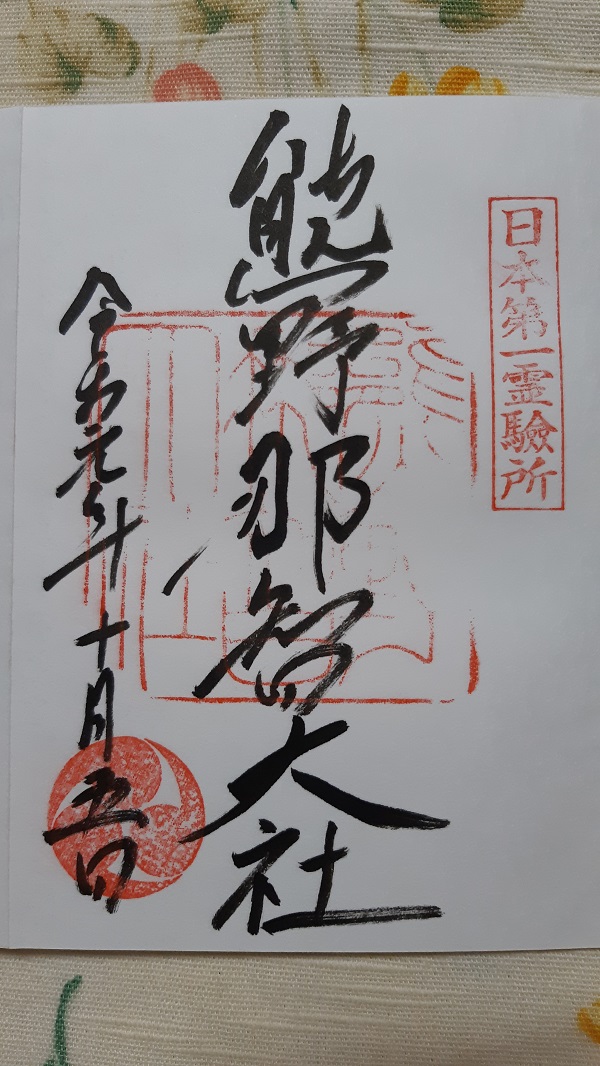 日本第一霊驗所
熊野那智大社
令和元年十月五日